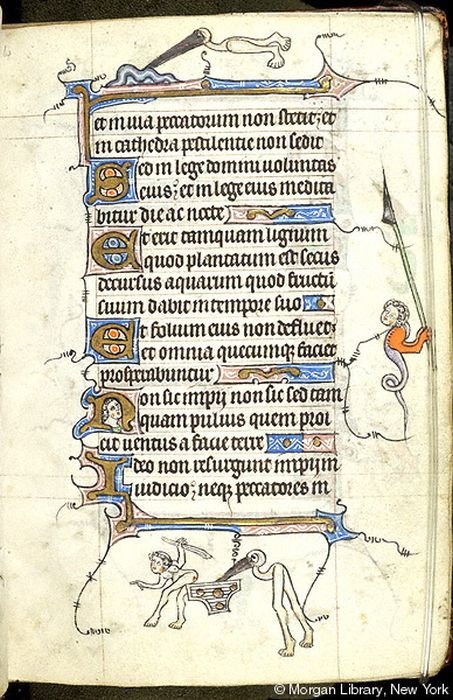 et in via peccatorum non stetit; et
in cathedra pestilentie non sedit
Sed in lege domini voluntas
eius; et in lege eius medita
bitur die ac nocte
Et erit tamquam lignum
quod plantatum est secus
decursus aquarum quod fructu
suum dabit in tempore suo
Et folium eius non defluet;
et omnia quecumque faciet
prosperabuntur
Non sic impij non sic sed tam
quam puluis quem proi
cit uentus a facie terre
Ideo non resurgunt impij in
iudicio; neque peccatores in
© Morgan Library, New York